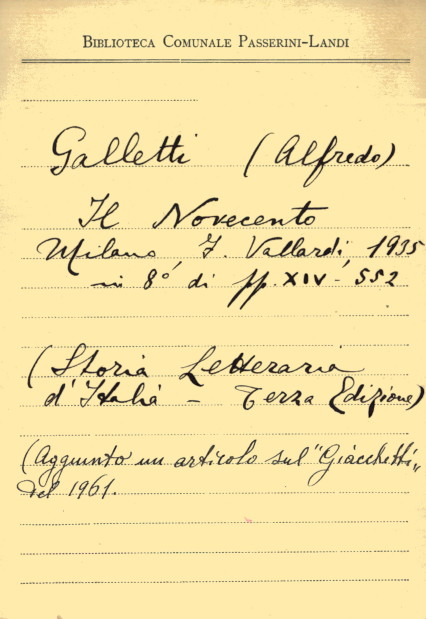 BIBLIOTECA COMUNALE PASSERINI-LANDI
Galletti (Alfredo)
Il Novecento
Milano, F. Vallardi, 1935
in 8° di pp. XIV-552
(Storia Letteraria
d'Italia - Terza Edizione)
(Aggiunto un articolo sul "Giacchetti"
del 1961.